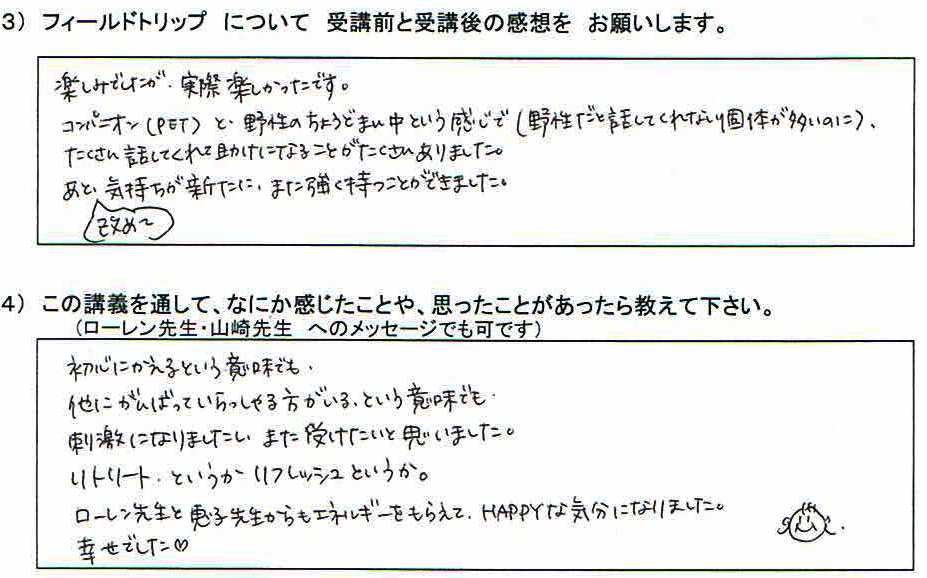 3） フィールドトリップ について 受講前と受講後の感想を お願いします。
楽しみでしたが、実際楽しかったです。
コンパニオン(PET) と、野性のちょうどまん中という感じで(野性だと話してくれない個体が多いのに)、
たくさん話してくれて助けになることがたくさんありました。
あと、気持ちが新たに、また強く持つことができました。
改めて
4） この講義を通して、なにか感じたことや、思ったことがあったら教えて下さい。
（ローレン先生・山崎先生 へのメッセージでも可です）
初心にかえるという意味でも、
他にがんばっていらっしゃる方がいる、という意味でも、
刺激になりましたし、また受けたいと思いました。
リトリート、というか リフレッシュというか。
ローレン先生と恵子先生からもエネルギーをもらえて、HAPPYな気分になりました。
幸せでした♡